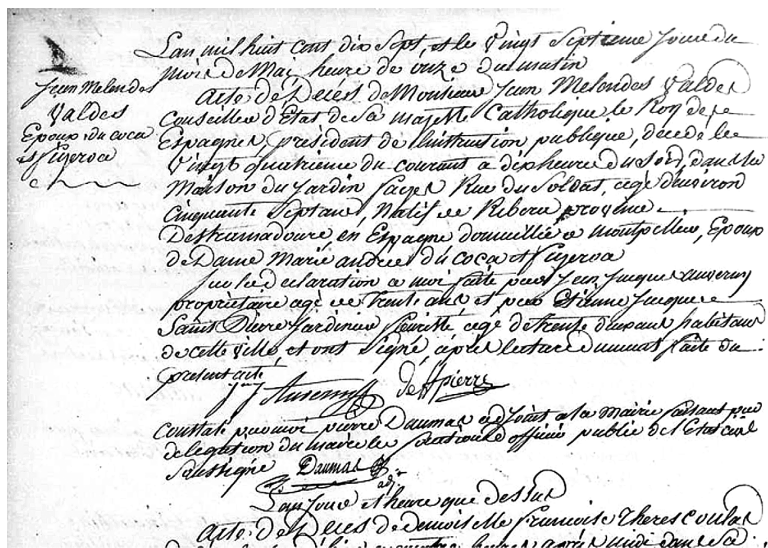 Jean Melendes
Valdes
Epoux du coca
et figeroa
L'an mil huit cent dix sept, et le vingt septieme jour du
mois de Mai, heure de onze du matin
Acte de Deces de Monsieur Jean Melendes Valdes
Conseiller d'Etat de sa majesté Catholique le Roy de
Espagnes President de l'instruction publique, décédé le
vingt quatrieme du courant a dix heures du soir, dans la
Maison du Jardin Rue du Soldat, agé d'environ
Cinquante Sept ans, Natif de Ribera province
Destramadoure en Espagne domicillié a Montpellier, Epoux
de Dame Marie andrée du coca et figeroa
Sur la declaration a moi faite par Jean Jacques
proprietaire agé de trente ans et par Etienne Jacques
Saint Pierre Jardinier fleuriste agé de trente deux ans habitans
de cette Ville, et ont signé, après lecture faite du
present acte
de St pierre
Constaté par moi pierre Daumas adjoint a la Mairie faisant par
delegation du maire les fonctions d'officier public de l'Etat civil
Soussigné Daumas
adj.
L'an jour et heure que dessus
Acte de Deces de Demoiselle françoise Therese
après midi dans sa